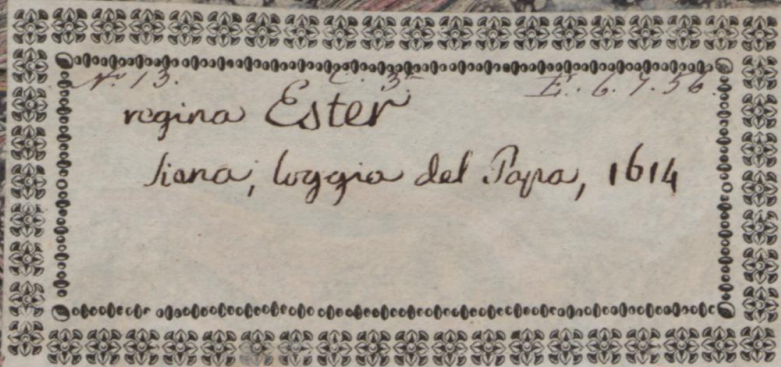 N.º 13. C. 3º E. 6. 7. 56.
regina Ester
Siena, loggia del Papa, 1614